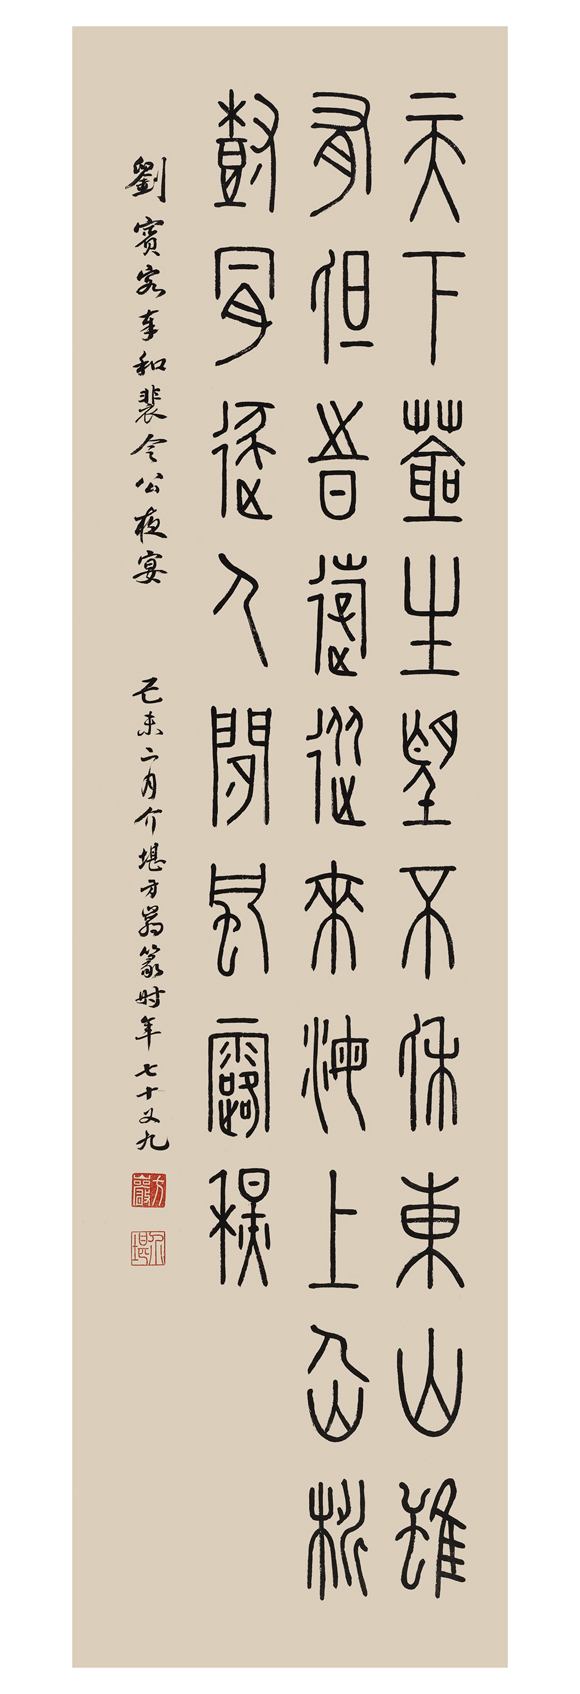 天下蒼生望不休東山雖
有但旹遊從來海上仚桃
樹肯逐人間風露秋
劉賓客奉和裴令公夜宴 己未二月介堪方巖篆时年七十又九
方巖
介堪